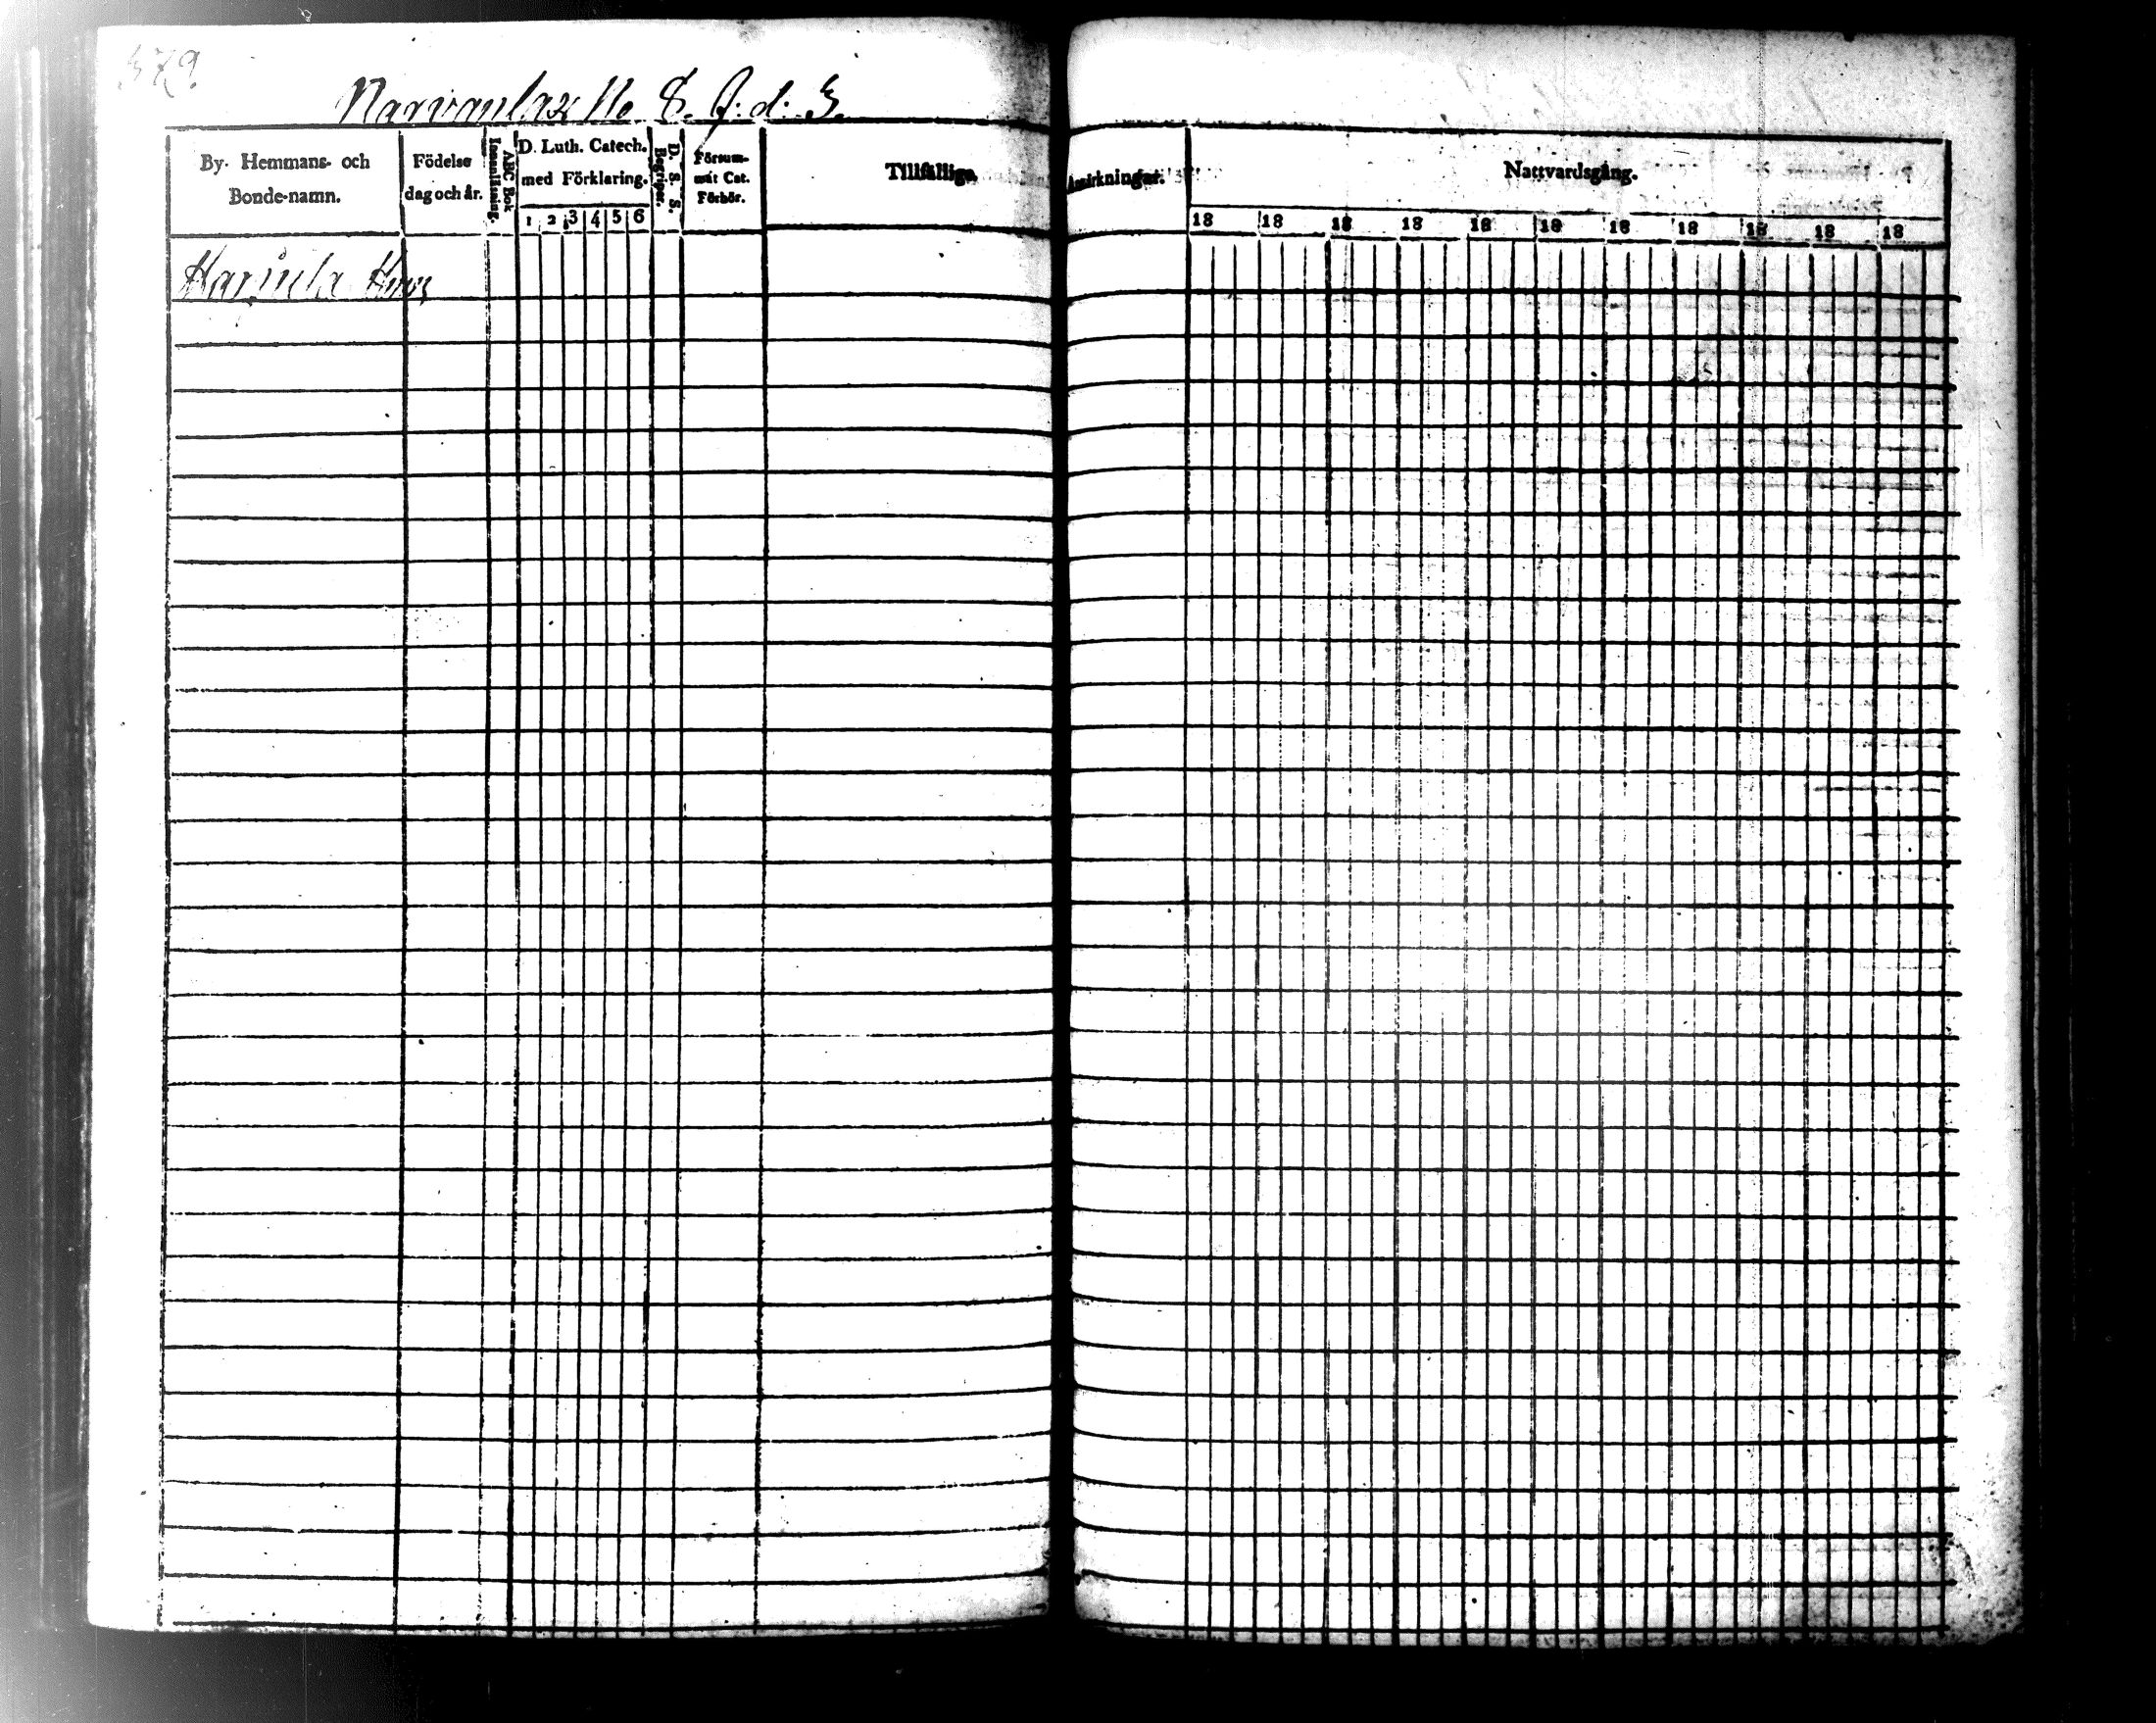 579.
No 8. f: d: 3.
By. Hemmans- och Bonde-namn.
Födelse dag och år.
ABC Bok Innanläsning.
D. Luth. Catech. med Förklaring.
1 2 3 4 5 6
D. S. S. Begriper.
Försum-
mat Cat.
Förhör.
Tillfällige Anmärkningar.
Nattvardsgång.
18 18 18 18 18 18 18 18 18 18 18